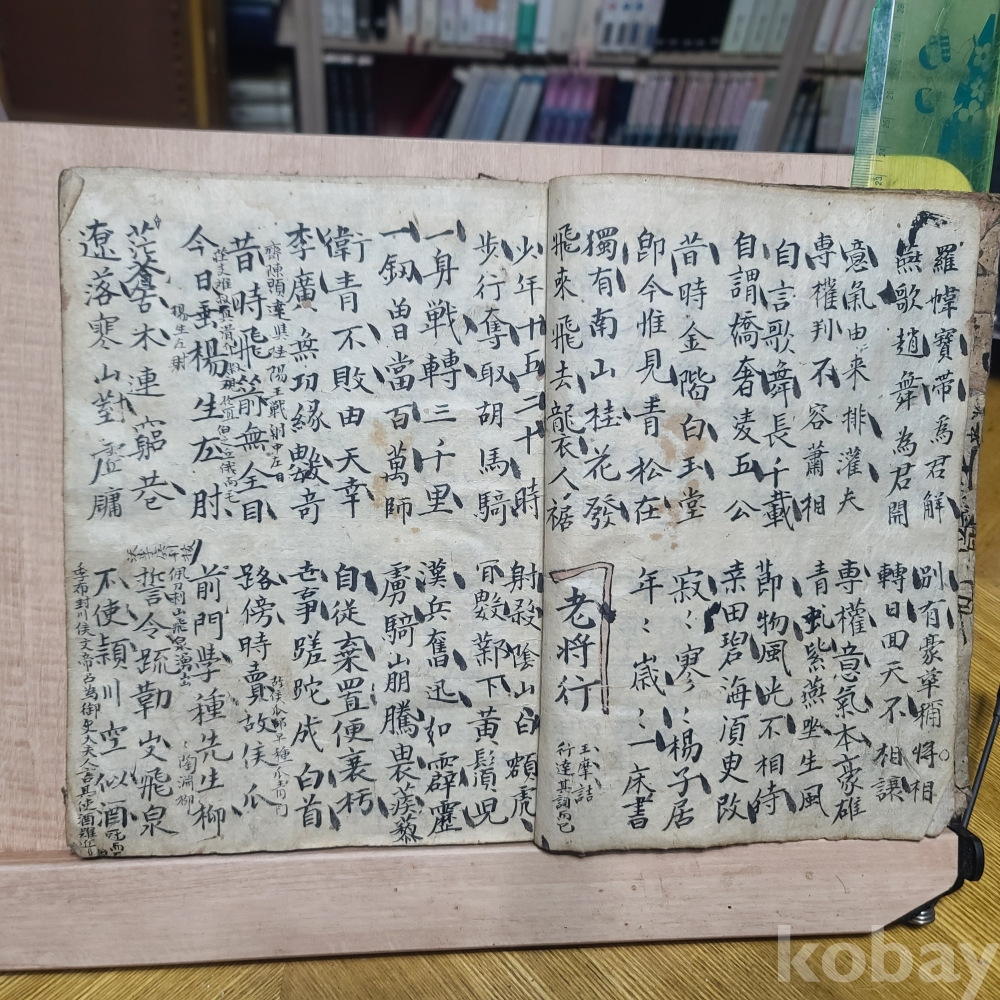 羅幃寶帶為君解
燕歌趙舞為君開
別有豪華稱將相
轉日回天不相讓
意氣由来排灌夫
專權判不容蕭相
專權意氣本豪雄
青虬紫燕坐生風
自言歌舞長千載
自謂橋奢凌五公
節物風光不相待
桒田碧海須臾改
昔時金階白玉堂
即今惟見青松在
寂〻寒〻楊子居
年〻歲〻一床書
獨有南山桂花發
飛來飛去襲人裾
老將行
王摩詰
行達其詞而已
少年十五二十時
步行奪取胡馬騎
射殺陰山白額虎
肎數鄴下黃鬚児
一身戰轉三千里
一釼曾當百萬師
漢兵奮迅如霹靂
虜騎崩騰畏蒺藜
衛青不敗由天幸
李廣無功緣數竒
自從棄置便衰朽
世事蹉跎成白首
昔時飛箭無全目
今日垂楊生左肘
楊生左肘
路傍時賣故侯瓜
前門學種先生柳
陶淵柳
茫蒼古木連窮巷
遼落寒山對虛牖
誓令疏勒出飛泉
不使潁川空似酒
kobay